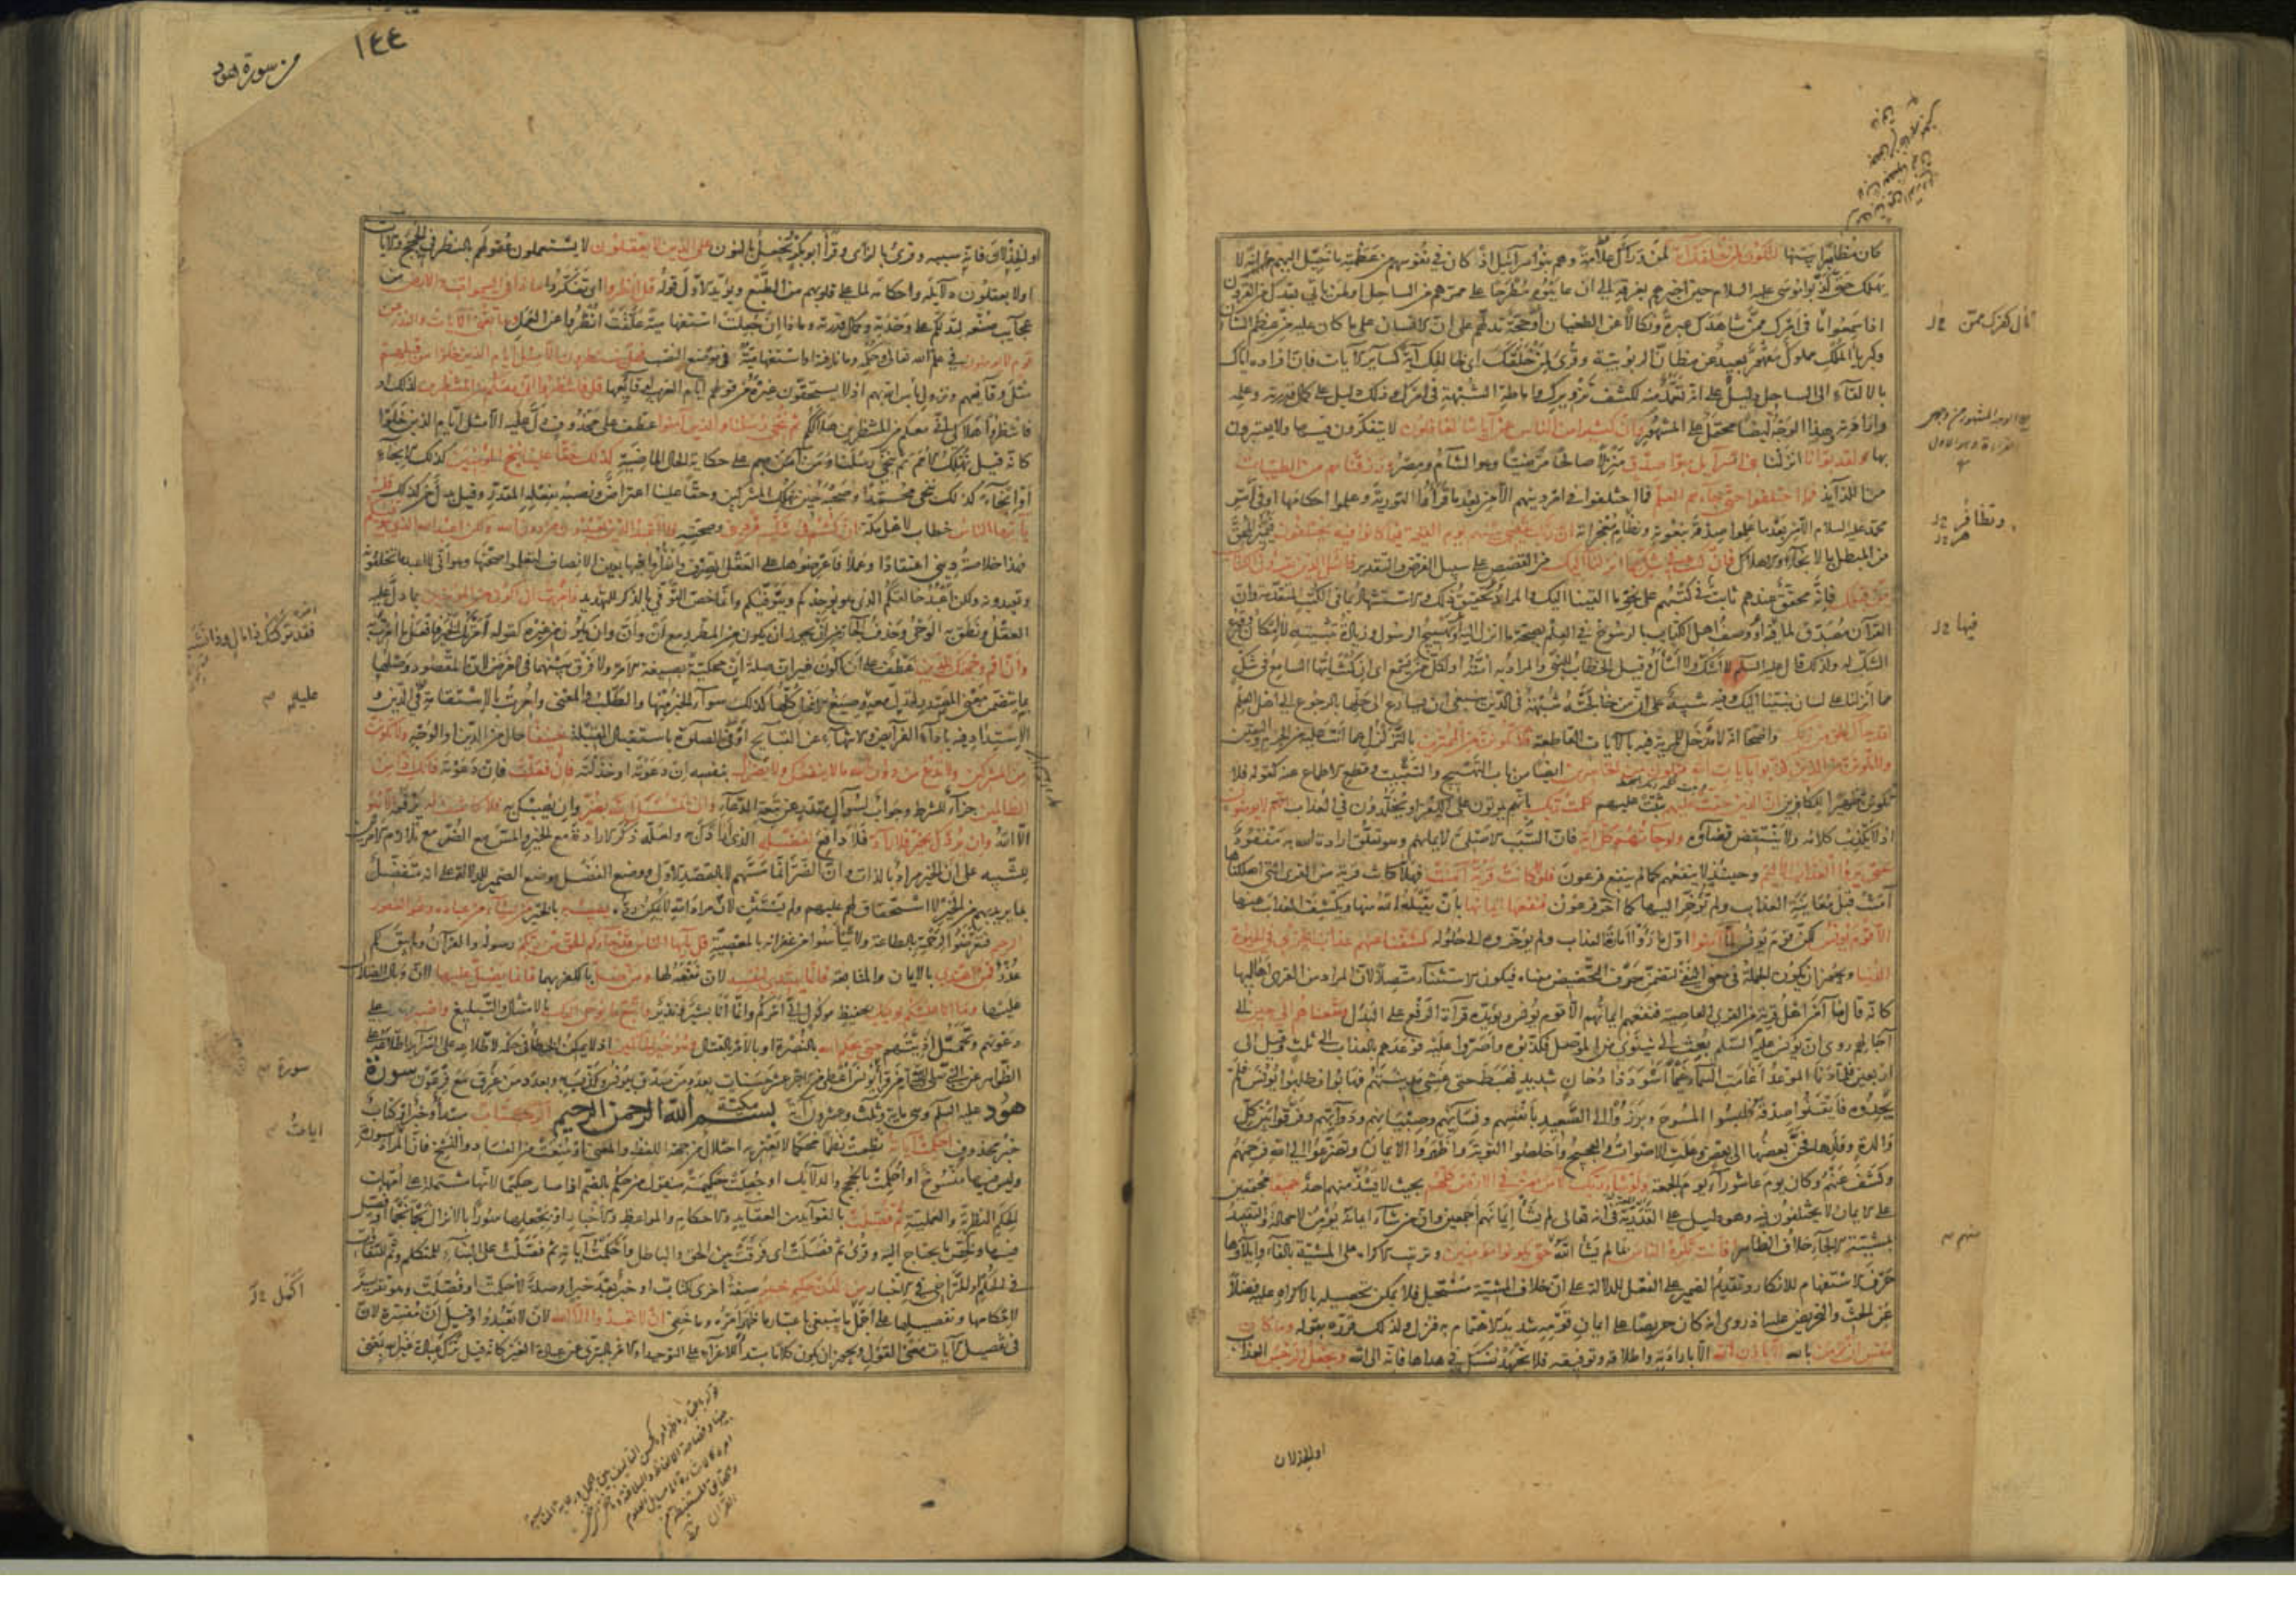 كان مطّرحا بينها لتكون لمن خلفك آية لمن وراءك علامة وهم بنوا اسرائيل اذ كان في نفوسهم من عظمته ما خيّل اليهم انه لا
يهلك حتى كذّبوا موسى عليه السلام حين اخبرهم بغرقه الى ان عاينوه مطرحا على ممرهم من الساحل او لمن ياتي بعدك من القرون
اذا سمعوا مآل امرك ممن شاهدك عبرة ونكالا عن الطغيان او حجة تدلهم على ان الانسان على ما كان عليه من عظم الشان
وكبرياء الملك مملوك مقهور بعيد عن مظانّ الربوبية وقرئ لمن خلقك اى لخالقك آية كسائر الآيات فان افراده اياك
بالالقاء الى الساحل دليل على انه تعمد منه لكشف تزويرك واماطة الشبهة في امرك وذلك دليل على كمال قدرته وعلمه
وارادته وهذا الوجه ايضا محتمل على المشهور وان كثيرا من الناس عن آياتنا لغافلون لا يتفكرون فيها ولا يعتبرون
بها ولقد بوأنا انزلنا بني اسرائيل مبوأ صدق منزلا صالحا مرضيّا وهو الشأم ومصر ورزقناهم من الطيبات
من اللذايذ فما اختلفوا حتى جاءهم العلم فما اختلفوا في امر دينهم الا من بعد ما قرأوا التورية وعلموا احكامها او في أمر
محمد عليه السلام الا من بعد ما علموا صدقه بنعوته وتظاهر معجزاته ان ربك يقضي بينهم يوم القيمة فيما كانوا فيه يختلفون فيميز المحق
من المبطل بالانجاء والاهلاك فان كنت في شك مما انزلنا اليك من القصص على سبيل الفرض والتقدير فاسئل الذين يقرؤن الكتاب
من قبلك فانه محقق عندهم ثابت في كتبهم على نحو ما القينا اليك والمراد تحقيق ذلك والاستشهاد بما في الكتب المتقدمة وان
القرآن مصدق لما فيها او وصف اهل الكتاب بالرسوخ في العلم بصحة ما انزل اليه او تهييج الرسول وزيادة تثبيته لا امكان وقوع
الشك له ولذلك قال عليه السلم لا اشك ولا اسأل وقيل الخطاب للنبي والمراد به امته او لكل من يسمع اى ان كنت ايها السامع في شك
مما انزلنا على لسان نبينا اليك وفيه تنبيه على ان من خالجته شبهة في الدين ينبغي ان يسارع الى حلها بالرجوع الى اهل العلم
لقد جاءك الحق من ربك واضحا انه لا مدخل للمرية فيه بالآيات القاطعة فلا تكونن من الممترين بالتزلزل عما انت عليه من الجزم واليقين
ولا تكونن من الذين كذبوا بآيات الله فتكون من الخاسرين ايضا من باب التهييج والتثبيت وقطع الاطماع عنه كقوله فلا
تكونن ظهيرا للكافرين ان الذين حقت عليهم ثبتت عليهم كلمت ربك بانهم يموتون على الكفر او يخلدون في العذاب لا يؤمنون
اذ لا يكذب كلامه ولا ينتقض قضاؤه ولو جاءتهم كل آية فان السبب الاصلى لايمانهم وهو تعلق ارادة الله به مفقود
حتى يروا العذاب الاليم وحينئذ لا ينفعهم كما لم ينفع فرعون فلولا كانت قرية آمنت فهلا كانت قرية من القرى التي اهلكناها
آمنت قبل معاينة العذاب ولم تؤخر اليها كما اخر فرعون فنفعها ايمانها بان يقبله الله منها ويكشف العذاب عنها
الا قوم يونس لكن قوم يونس لما آمنوا اول ما رأوا امارة العذاب ولم يؤخروه الى حلوله كشفنا عنهم عذاب الخزي في الحيوة
الدنيا ويجوز ان يكون الجملة في معنى النفي لتضمن حرف التحضيض معناه فيكون الاستثناء متصلا لان المراد من القرى اهاليها
كانه قال ما آمن اهل قرية من القرى العاصية فنفعهم ايمانهم الا قوم يونس ويؤيده قراءة الرفع على البدل ومتعناهم الى حين الى
آجالهم روى ان يونس عليه السلم بعث الى نينوى من الموصل فكذبوه واصروا عليه فوعدهم بالعذاب الى ثلث وقيل الى
اربعين فلما دنا الموعد اغامت السماء غيما اسود ذا دخان شديد فهبط حتى غشي مدينتهم فهابوا فطلبوا يونس فلم
يجدوه فايقنوا صدقه فلبسوا المسوح وبرزوا الى الصعيد بانفسهم ونسائهم وصبيانهم ودوابهم وفرقوا بين كل
والدة وولدها فحنّ بعضها الى بعض وعلت الاصوات والعجيج واخلصوا التوبة واظهروا الايمان وتضرعوا الى الله فرحمهم
وكشف عنهم وكان يوم عاشوراء يوم الجمعة ولو شاء ربك لآمن من في الارض كلهم بحيث لا يشذ منهم احد جميعا مجتمعين
على الايمان لا يختلفون فيه وهو دليل على القدرية في انه تعالى لم يشأ ايمانهم اجمعين وان من شاء ايمانه يؤمن لا محالة والتقييد
بمشية الالجاء خلاف الظاهر افانت تكره الناس بما لم يشأ الله حتى يكونوا مؤمنين وترتيب الاكراه على المشية بالفاء وايلاؤها
حرف الاستفهام للانكار وتقديم الضمير على الفعل للدلالة على ان خلاف المشية مستحيل فلا يمكن تحصيله بالاكراه عليه فضلا
عن الحث والتحريض عليه اذ روى انه كان حريصا على ايمان قومه شديد الاهتمام به فنزل ولذلك قرره بقوله وما كان
لنفس ان تؤمن بالله الا باذن الله الا بارادته واطلاقه وتوفيقه فلا تجهد نفسك في هداها فانه الى الله ويجعل الرجس العذاب
او الخذلان
مآل امرك ممن
وتظاهر
فيها
١٤٤
من سورة هود
او الخذلان فانه سببه وقرئ بالزاي وقرأ ابو بكر نجعل بالنون على الذين لا يعقلون لا يستعملون عقولهم بالنظر في الحجج والآيات
او لا يعقلون دلائله واحكامه لما على قلوبهم من الطبع ويؤيد الاول قوله قل انظروا اى تفكروا ماذا في السموات والارض من
عجايب صنعه لتدلكم على وحدته وكمال قدرته وماذا ان جعلت استفهامية علقت انظروا عن العمل وما تغني الآيات والنذر عن
قوم لا يؤمنون في علم الله تعالى وحكمه وما نافية او استفهامية في موضع النصب فهل ينتظرون الا مثل ايام الذين خلوا من قبلهم
مثل وقايعهم ونزول بأس الله بهم اذ لا يستحقون غيره من قولهم ايام العرب لوقايعها قل فانتظروا اني معكم من المنتظرين لذلك او
فانتظروا هلاكي اني معكم من المنتظرين هلاككم ثم ننجي رسلنا والذين آمنوا عطف على محذوف دل عليه الا مثل ايام الذين خلوا
كانه قيل نهلك الامم ثم ننجي رسلنا ومن آمن بهم على حكاية الحال الماضية كذلك حقا علينا ننج المؤمنين كذلك الانجاء
او انجاء كذلك ننجي محمدا وصحبه حين نهلك المشركين وحقا علينا اعتراض ونصبه بفعله المقدر وقيل بدل من كذلك قل
يا ايها الناس خطاب لاهل مكة ان كنتم في شك من ديني وصحته فلا اعبد الذين تعبدون من دون الله ولكن اعبد الله الذي يتوفيكم
فهذا خلاصة ديني اعتقادا وعملا فاعرضوها على العقل الصرف وانظروا فيها بعين الانصاف لتعلموا صحتها وهو اني لا اعبد ما تخلقونه
وتعبدونه ولكن اعبد خالقكم الذي هو يوجدكم ويتوفيكم وانما خص التوفي بالذكر للتهديد وامرت ان اكون من المؤمنين بما دل عليه
العقل ونطق به الوحي وحذف الجار من ان يجوز ان يكون من المطرد مع أنّ وأن وان يكون من غيره كقوله امرتك الخير فافعل ما امرت به
وان اقم وجهك للدين عطف على ان اكون غير ان صلة ان محكية بصيغة الامر ولا فرق بينهما في الغرض لان المقصود وصلها
بما يتضمن معنى المصدر لتدل معه عليه وصيغ الافعال كلها كذلك سواء الخبر منها والطلب والمعنى وامرت بالاستقامة في الدين و
الاستبداد فيه باداء الفرايض والانتهاء عن القبايح او في الصلوة باستقبال القبلة حنيفا حال من الدين او الوجه ولا تكونن
من المشركين ولا تدع من دون الله ما لا ينفعك ولا يضرك بنفسه ان دعوته او خذلته فان فعلت فان دعوته فانك اذا من
الظالمين جزاء للشرط وجواب لسؤال مقدر عن تبعة الدعاء وان يمسسك الله بضر وان يصبك به فلا كاشف له يرفعه الا هو
الا الله وان يردك بخير فلا راد فلا دافع لفضله الذي ارادك به ولعله ذكر الارادة مع الخير والمس مع الضر مع تلازم الامرين
للتنبيه على ان الخير مراد بالذات وان الضر انما مسهم لا بالقصد الاول ووضع الفضل موضع الضمير للدلالة على انه متفضل
بما يريد بهم من الخير لا استحقاق لهم عليهم ولم يستثن لان مراد الله لا يمكن رده يصيب به بالخير من يشاء من عباده وهو الغفور
الرحيم فتعرضوا لرحمته بالطاعة ولا تيأسوا من غفرانه بالمعصية قل يا ايها الناس قد جاءكم الحق من ربكم رسوله او القرآن ولم يبق لكم
عذر فمن اهتدى بالايمان والمتابعة فانما يهتدي لنفسه لان نفعه لها ومن ضل بالكفر بهما فانما يضل عليها لان وبال الضلال
عليها وما انا عليكم بوكيل بحفيظ موكول الى امركم وانما انا بشير ونذير واتبع ما يوحى اليك بالامتثال والتبليغ واصبر على
دعوتهم وتحمل اذيتهم حتى يحكم الله بالنصرة او بالامر بالقتال وهو خير الحاكمين اذ لا يمكن الخطأ في حكمه لاطلاعه على السرائر اطلاعه على
الظواهر عن النبي صلى الله من قرأ يونس اعطي من الاجر عشر حسنات بعدد من صدق بيونس وكذب به وبعدد من غرق مع فرعون سورة
هود عليه السلم وهي ماية وثلث وعشرون آية مكية بسم الله الرحمن الرحيم الر كتاب مبتدأ وخبر او كتاب
خبر محذوف احكمت آياته نظمت نظما محكما لا يعتريه اختلال من جهة اللفظ والمعنى او منعت من الفساد والنسخ فان المراد آيات السورة
وليس فيها منسوخ او احكمت بالحجج والدلايل او جعلت حكيمة منقول من حكم بالضم اذا صار حكيما لانها مشتملة على امهات
الحكم النظرية والعملية ثم فصلت بالفوايد من العقايد والاحكام والمواعظ والاخبار او بجعلها سورا او بالانزال نجما نجما او فصل
فيها ولخص ما يحتاج اليه وقرئ ثم فصلت اى فرقت بين الحق والباطل واحكمت آياته ثم فصلت على البناء للمتكلم وثم للتفاوت
في الحكم او للتراخي في الاخبار من لدن حكيم خبير صفة اخرى لكتاب او خبر بعد خبر او صلة لاحكمت او فصلت وهو تقرير
لاحكامها وتفصيلها على اجمل ما ينبغي باعتبار ما ظهر امره وما خفي ان لا تعبدوا الا الله لان لا تعبدوا وقيل ان مفسرة لان
في تفصيل الآيات معنى القول ويجوز ان يكون كلاما مبتدأ للاغراء على التوحيد او الامر بالتبري عن عبادة الغير كانه قيل ترك عبادة غير الله بمعنى
عليهم
سورة
آيات
منهم
اكمل